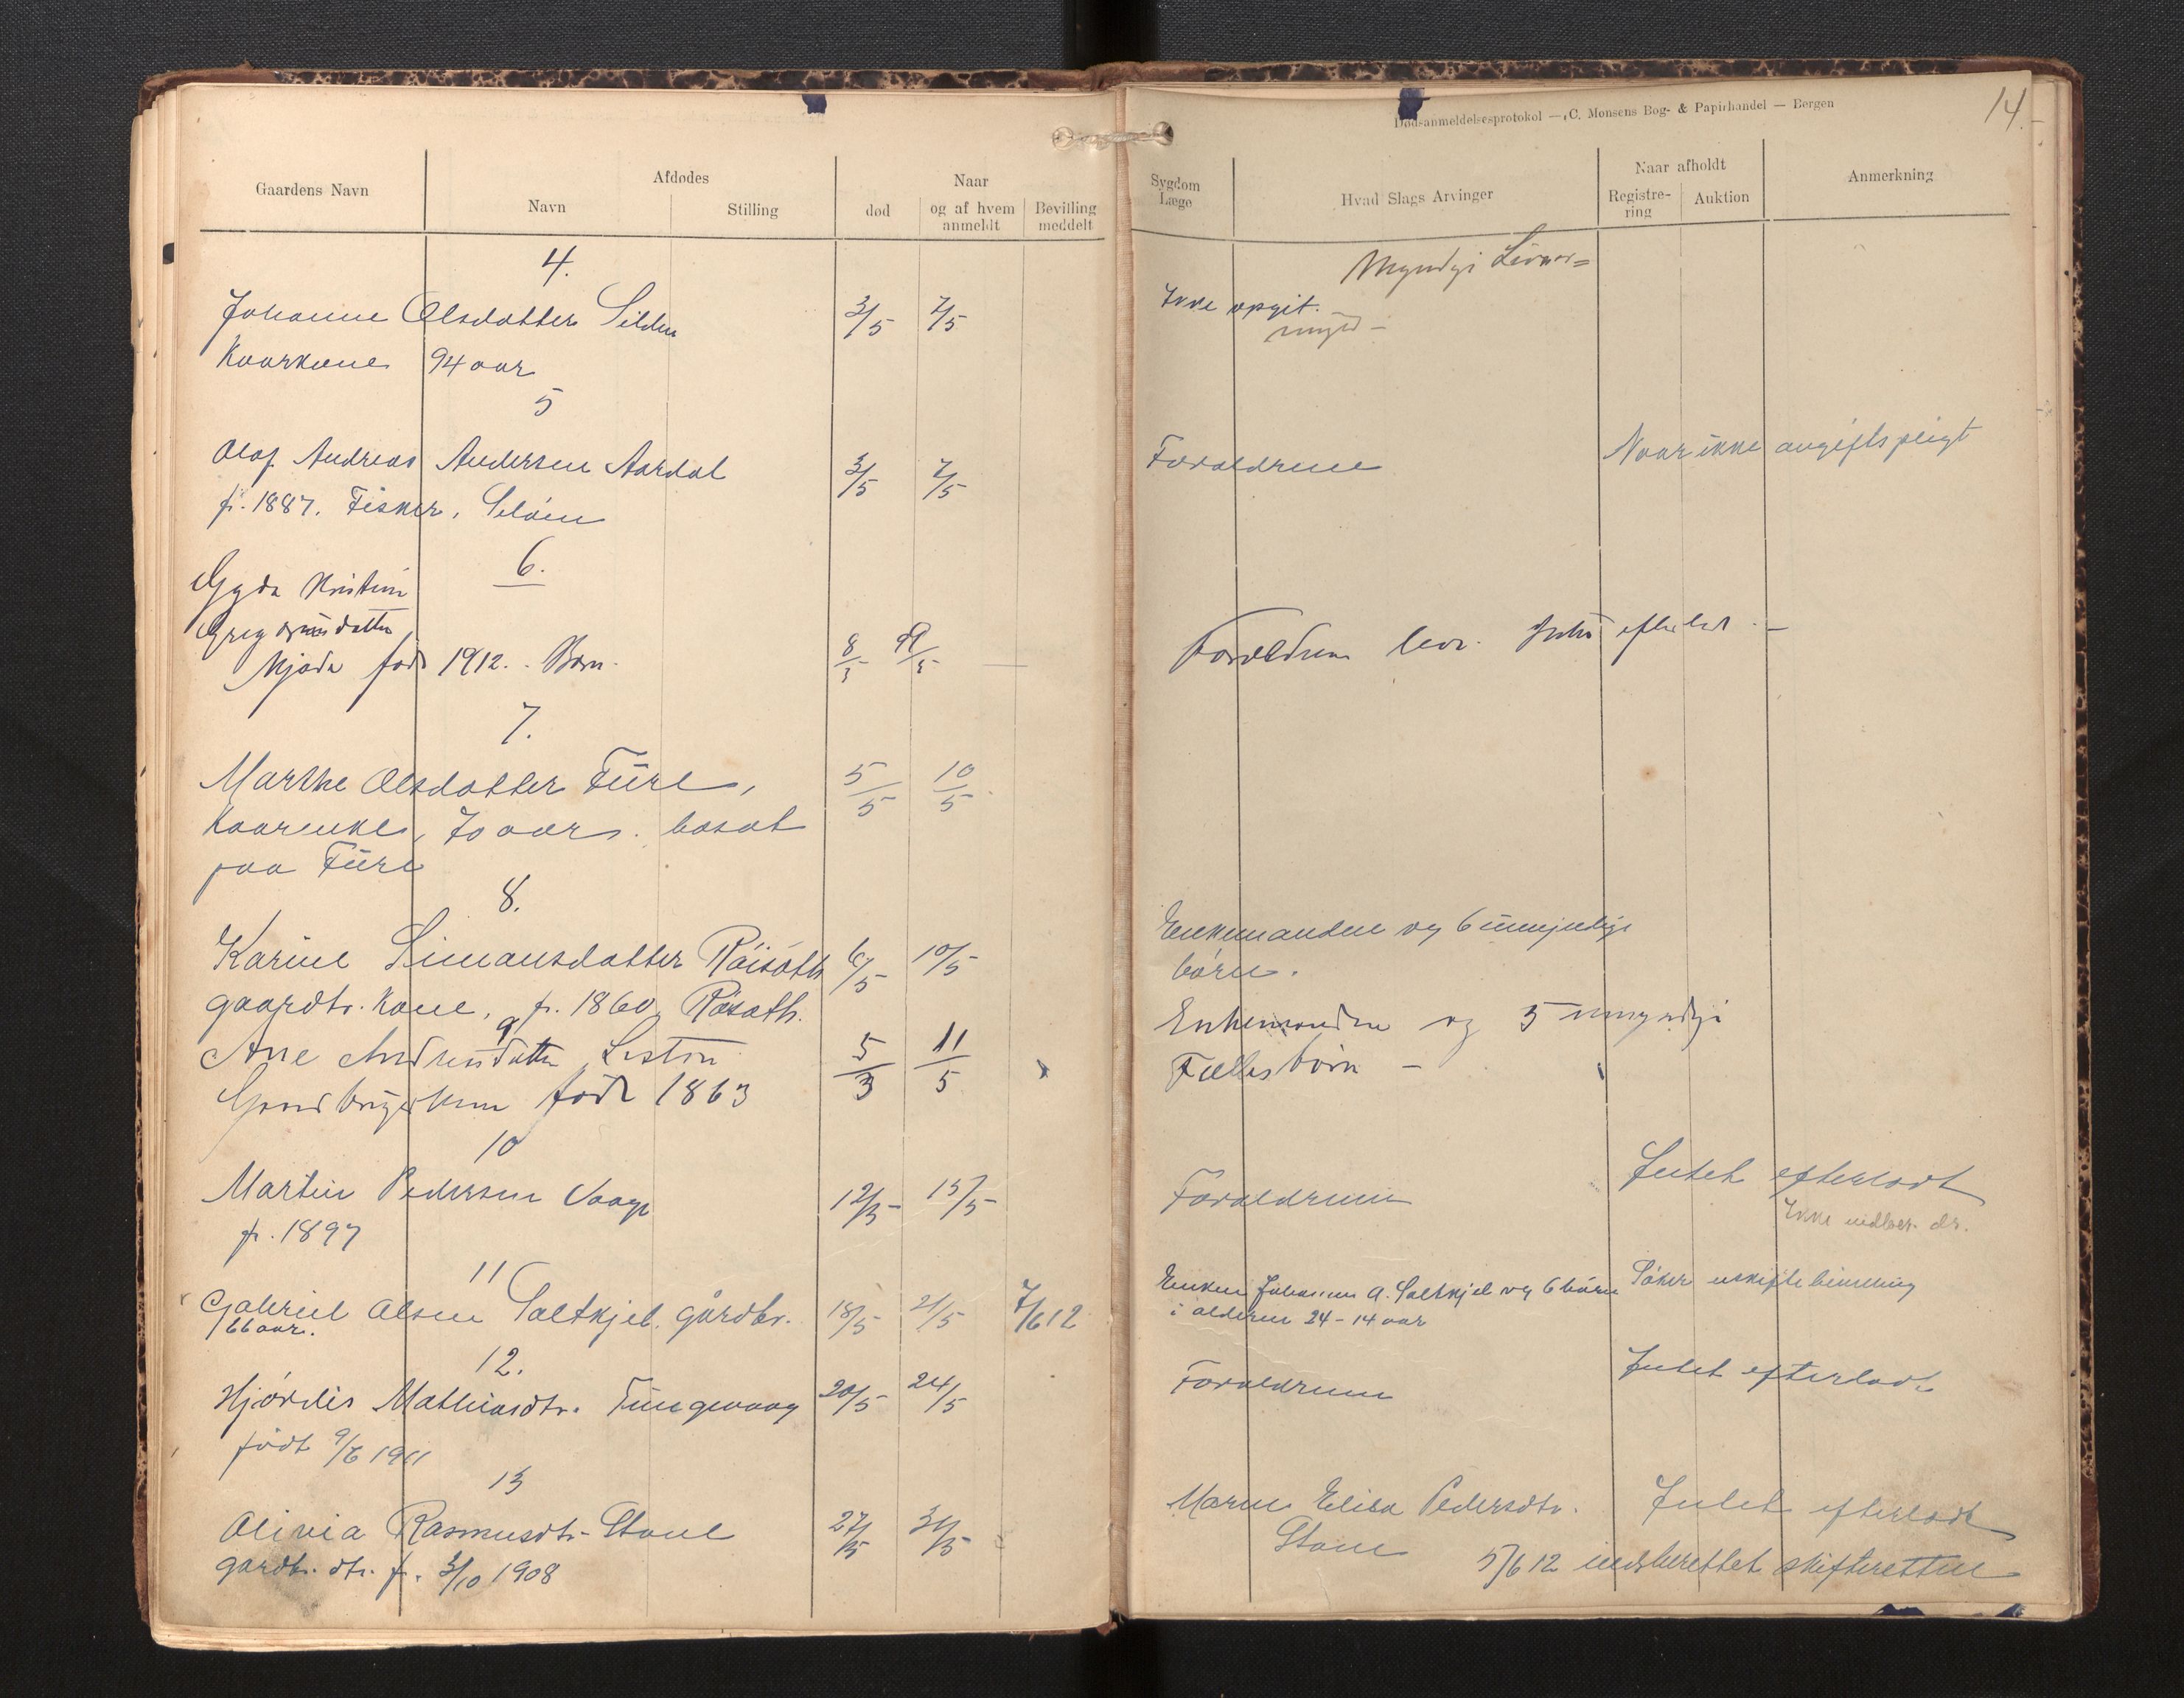 Dødsanmeldelsesprotokol — C. Monsens Bog- & Papirhandel — Bergen
14.
Gaardens Navn
Afdødes
Navn
Stilling
Naar
død
og af hvem anmeldt
Bevilling meddelt
Sygdom
Læge
Hvad Slags Arvinger
Naar afholdt
Registrering
Auktion
Anmerkning
4.
Johanne Olsdatter Silden 3/5 7/5 Ikke opgit.
Kaarkone 94 aar
5
Olaf Andreas Andersen Aardal 3/5 7/5 Forældrene Naar ikke avgiftspligt
f. 1887. Fisker,
6.
Gyda Kristine
født 1912. Barn. Forældrene lever. efterladt. —
7.
Marthe Olsdatter Fure, 5/5 10/5
Kaarenke, 70 aar. bosat
paa Fure
8.
Karine Simonsdatter 6/5 10/5 Enkemanden og 6 umyndige
børn.
gaardbr. kone, f. 1860,
9
Ane 5/3 11/5 Enkemanden og 5 umyndige
født 1863 Fællesbørn —
10
Martin Pedersen Vaage 12/5 15/5 Forældrene Intet efterladt
f. 1897 Ikke indber. dr.
11
Gabriel Olsen Saltkjel. gårdbr. 18/5 21/5 7/6 12 Enken Johanne A. Saltkjel og 6 børn Søker uskiftebevilling
66 aar. i alderen 24-14 aar
12.
Hjørdis Mathiasdtr. Tungevaag 20/5 24/5 Forældrene Intet efterladt
født 9/6 1911
13
Olivia Rasmusdtr. Stave 27/5 31/5 Maren Elisa Pedersdtr. Intet efterladt
Stave
gardbr. dtr. f. 3/10 1908 5/6 12 indberettet skifteretten